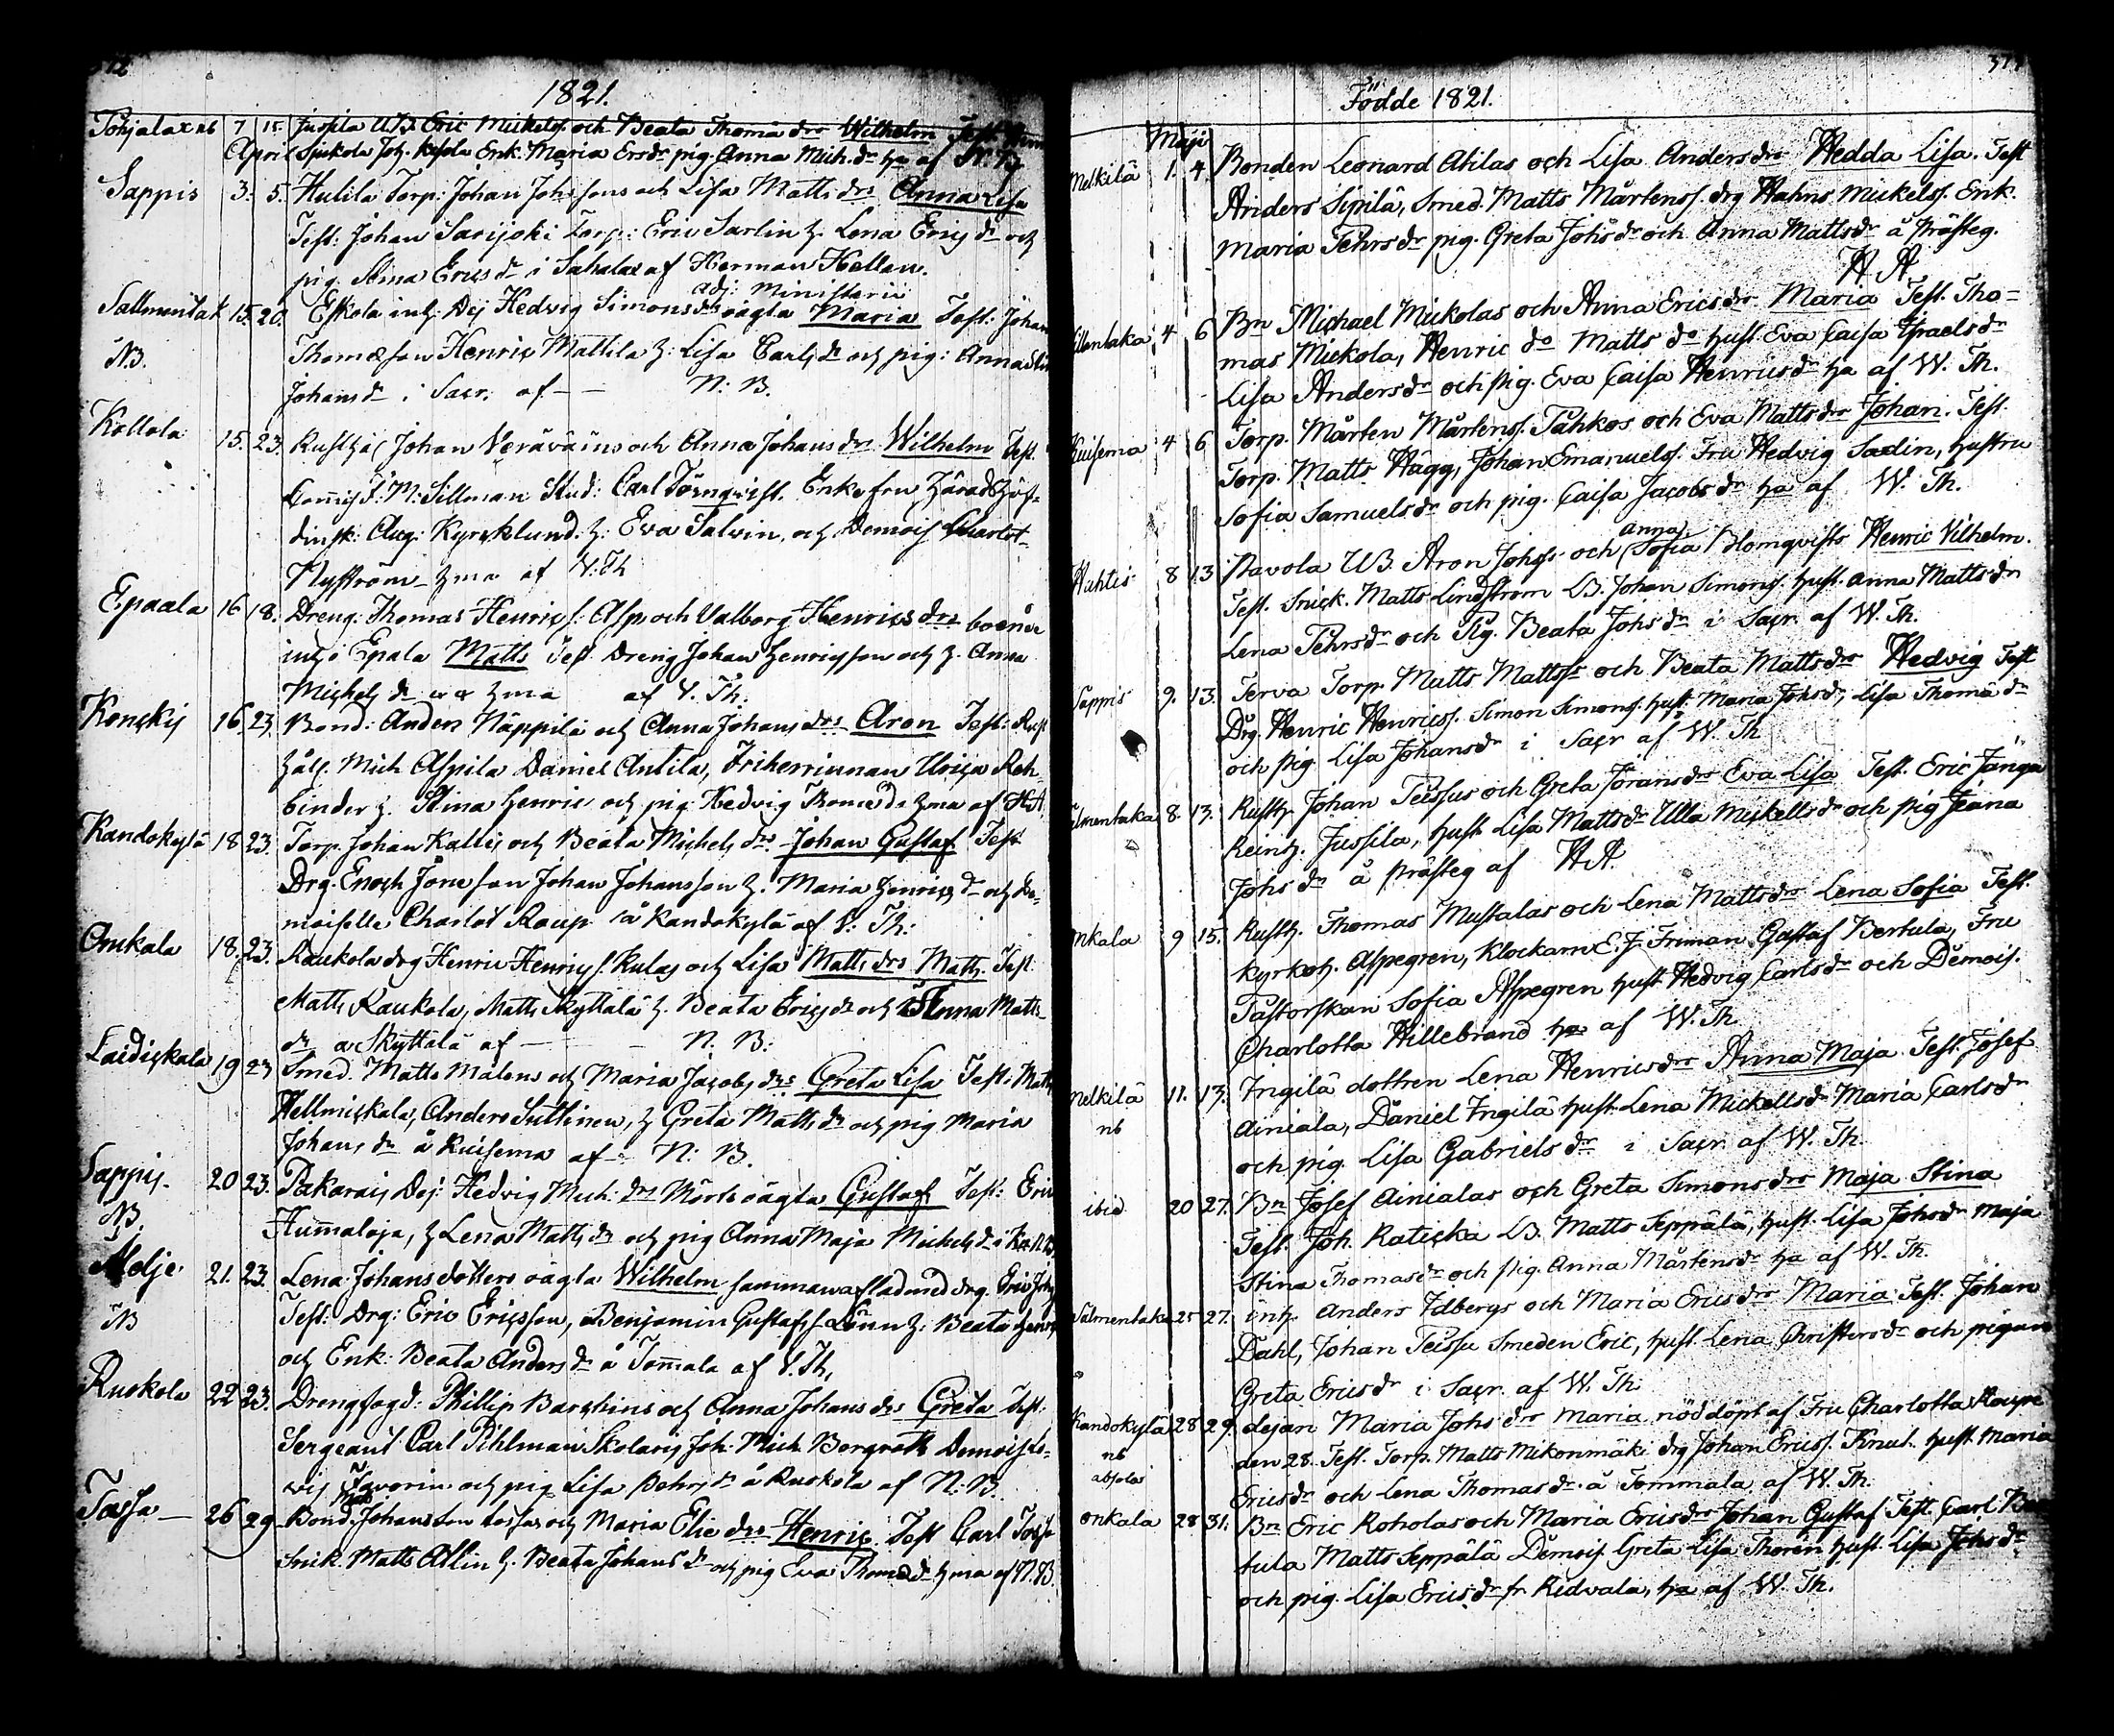 1821.
Tohjalax nb 7 15 Jussila UB. Eric Mickels. och Beata Thomä drs Wilhelm Test.
April Sjukola Joh. Enk. Maria Ersdr pig. Anna Mich. dr ha af
Sappis 3. 5. Hulila Torp: Johan Johssons och Lisa Matts drs Anna Lisa
Test: Johan Sarijoki Torp: Eric Sarlin h. Lena Erics dr och
pig Stina Erics dr i Sahalax af Herman Hellen.
adj: Ministerii
Sallmentak 15. 20. Eskola inh: Dej Hedvig Simons drs oägta Maria Test: Johan
NB. Thomæson Henric Mattila h: Lisa Carls dr och pig: Anna
Johans dr i Sacr. af — N: B.
Kollola 15. 23. Rusth: Johan Veräväins och Anna Johans drs Wilhelm Test.
Commis I: M: Sillman Stud: Carl Törnqvist. Enkefru Häradshöf-
dinsk: Aug: Kyrcklund. h: Eva Salvin, och Demois Charlot-
Nyström hma af V: Th
Epaala 16 18. Dreng: Thomas Henrics: Asp och Valborg Henrics drs boende
inh i Epala Matts Test. Dreng Johan Henricsson och h. Anna
Michels dr hma af V. Th.
Konckis 16 23. Bond: Anders Näppilä och Anna Johans drs Aron Test: Rust
håll. Mich Aspila Daniel Antila, Friherrinnan Ulrica Reh-
binder h. Stina Henric och pig Hedvig Thomæ dr hma af H A
Kandokylä 18 23. Torp. Johan Kallis och Beata Michels drs Johan Gustaf Test
Drg. Enoch Jöransson Johan Johansson h. Maria Henrics dr och De-
moiselle Charlot Roup å Kandokylä af V: Th:
Onkala 18. 23. Raukola drg Henric Henrics. Kulas och Lisa Matts drs Matts. Test
Matts Raukola, Matts Skyttälä h. Beata Erics dr och Anna Matts
dr å Skyttälä af — N. B:
Laidickala 19 23 Smed. Matts Malens och Maria Jacobs drs Greta Lisa Test: Matts
Hellmickala, Anders Suttinen, h Greta Matts dr och pig Maria
Johans dr å Ruisema af N: B.
Sappis 20 23. Pakarais Dej: Hedvig Mich: drs Mörts oägta Gustaf Test: Eric
NB. Humaloja, h Lena Matts dr och pig Anna Maja Michels dr
Molje 21. 23. Lena Johansdotters oägta Wilhelm samman aflad med drg. Eric Johs
NB Test: Drg: Eric Ericsson, Benjamin Gustafs. Lönn h: Beata Henrics
och Enk: Beata Anders dr å Tommala af V. Th,
Ruokola 22 23. Drengfogd: Phillip Barckins och Anna Johans drs Greta Test.
Sergeant Carl Pihlman Skolaris Joh. Mich Bergroth Demois Lo-
vis Favorin och pig Lisa Pehrs dr å Ruokola af N: B.
Taessa — 26 29. Bond. Johansson och Maria Elie drs Henric. Test Carl
Snick. Matts Allin h. Beata Johans dr och pig Eva Thomædr hma af N. B.
Födde 1821.
Maji
Melkilä 1. 4. Bonden Leonard Atilas och Lisa Anders drs Hedda Lisa. Test
Anders Sipilä, Smed. Matts Mårtenss. drg Hahns Mickelss. Enk.
Maria Pehrs dr pig. Greta Johs dr och Anna Matts dr å Prästeg.
H A
4 6 Bn Michael Mickolas och Anna Erics drs Maria Test. Tho=
mas Mickola, Henric do Matts do hust Eva Caisa Israels dr
Lisa Anders dr och pig. Eva Caisa Henrics dr ha af W. Th.
Ruisema 4 6 Torp. Mårten Mårtenss. Tåhkos och Eva Matts drs Johan. Test.
Torp. Matts Hägg, Johan Emanuelss. Fru Hedvig Sadin, hustru
Sofia Samuels dr och pig. Caisa Jacobs dr ha af W. Th.
Huhtis 8 13 Pavola UB. Aron Johss och (Anna) Sofia Blomqvists Henric Vilhelm.
Test. Snick. Matts Lindström UB. Johan Simons. hust. Anna Matts dr
Lena Pehrs dr och Pig. Beata Johs dr i Sacr. af W. Th.
Sappis 9. 13. Terva Torp. Matts Mattss och Beata Matts drs Hedvig Test
Drg. Henric Henricss. Simon Simonss. hust. Maria Johs dr, Lisa Thomä dr
och pig Lisa Johans dr i Sacr af W. Th
8. 13. Rusth. Johan Teissus och Greta Jörans drs Eva Lisa Test. Eric Jänga
Reinh. Jussila, hust Lisa Matts dr Ulla Mickells dr och pig Jeana
Johs dr å prästeg af H A.
Onkala 9 15. Rusth. Thomas Mustalas och Lena Matts drs Lena Sofia Test.
Kyrkoh. Aspegren, Klockarn E. J. Friman Gustaf Bertula, Fru
Pastorskan Sofia Aspegren hust Hedvig Carls dr och Demois.
Charlotta Hillebrand ha af W. Th
Melkilä 11. 13. Ingilä dottren Lena Henrics drs Anna Maja. Test. Josef
nb Ainiala, Daniel Ingilä hust. Lena Mickells dr Maria Carls dr
och pig. Lisa Gabriels dr i Sacr af W. Th.
ibid 20 27. Bn Josef Ainialas och Greta Simons drs Maja Stina
Test. Joh. Raticka UB. Matts Seppälä, hust. Lisa Johs dr Maja
Stina Thomas dr och pig. Anna Mårtens dr ha af W. Th.
Salmentaka 25 27. inh. Anders Idbergs och Maria Erics drs Maria Test. Johan
Dahl, Johan Teissu Smeden Eric, hust. Lena Christers dr och pigan
Greta Erics dr i Sacr. af W. Th.
Kandokylä 28 29. dejan Maria Johs drs Maria nöddöpt af Fru Charlotta
nb den 28. Test. Torp. Matts Nikonmäki drg Johan Ericss. Knut. hust Maria
absolvi Erics dr och Lena Thomas dr å Tommala af W. Th.
Onkala 28 31. Bn Eric Koholas och Maria Erics drs Johan Gustaf Test. Carl
tula Matts Seppälä Demois. Greta Lisa Thoren hust. Lisa Johs dr
och pig. Lisa Erics dr fr Ridvala, ha af W. Th.